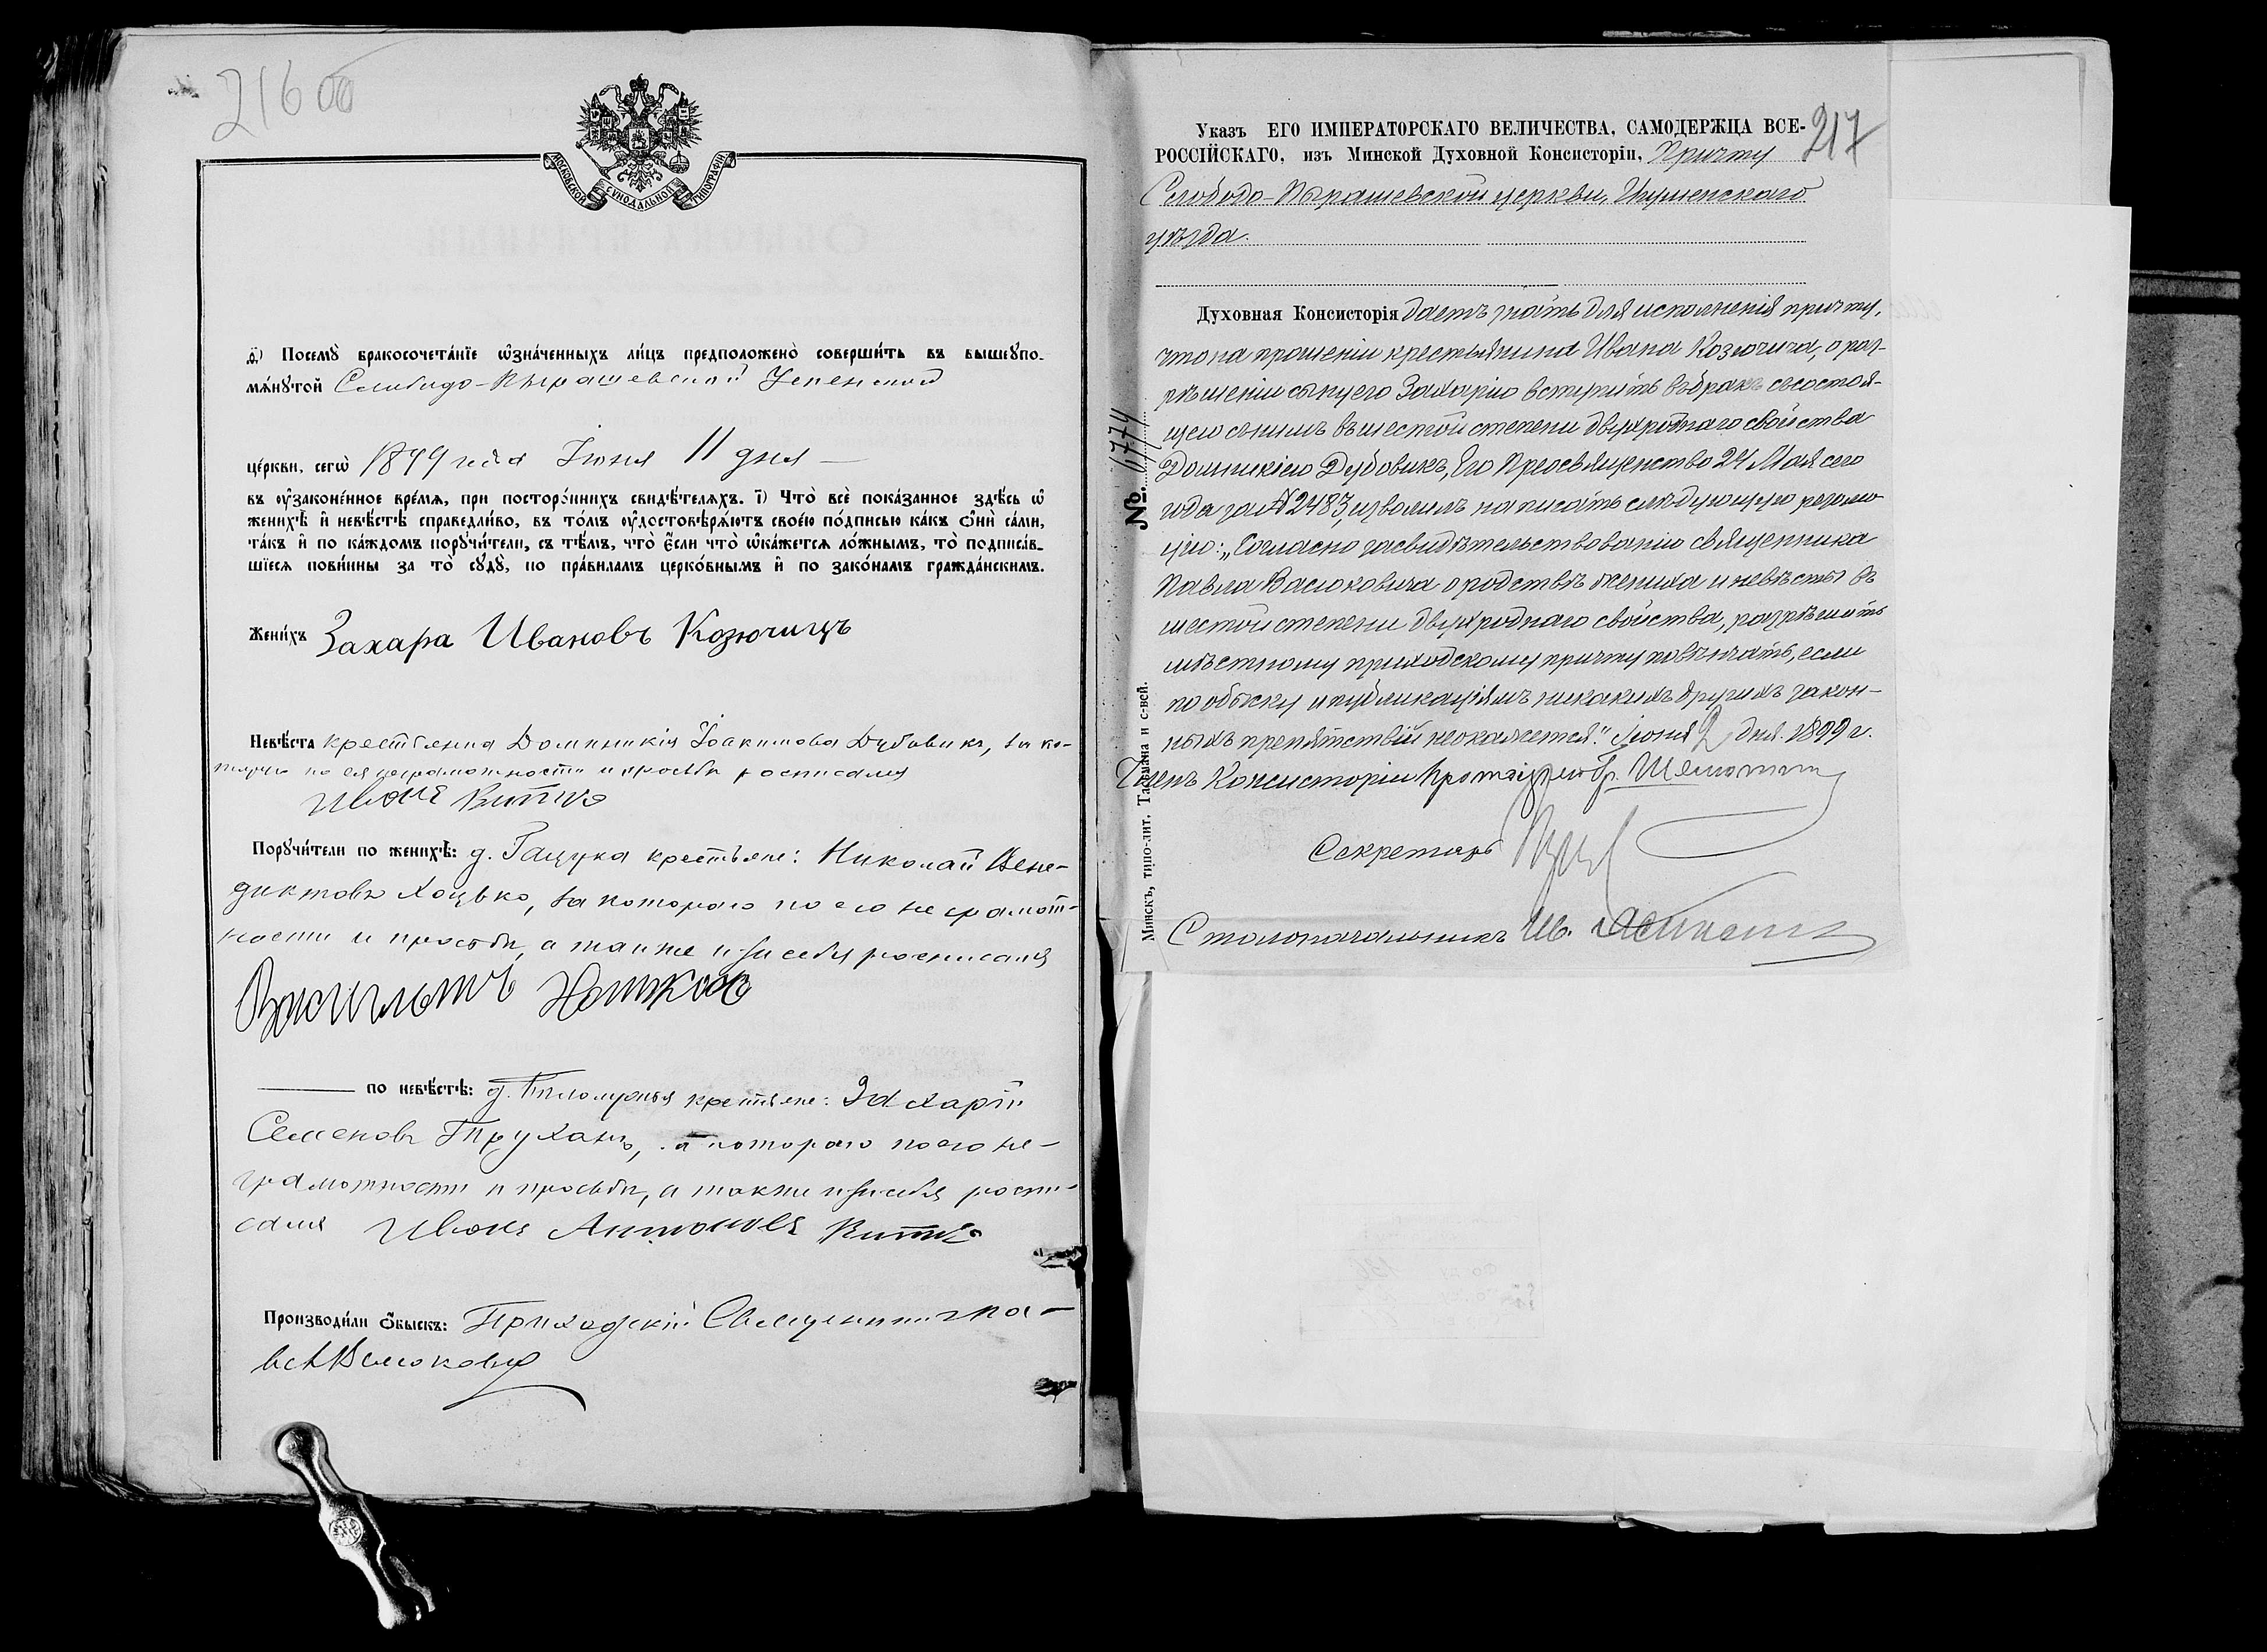 216 об
МОСКОВСКОЙ СѴНОДАЛЬНОЙ ТИПОГРАФІИ
ѳ҃) Посемꙋ̀ бракосочета́нїе ѡ҆зна́ченныхъ ли́цъ предположено̀ соверши́ть въ вышеꙋпо-
мѧ́нꙋтой Слободо-Пырашевской Успенской
це́ркви, сегѡ̀ 1899 года Іюня 11 дня —
въ ᲂу҆зако́ненное вре́мѧ, при посторо́ннихъ свидѣ́телѧхъ. і҃) Что̀ всѐ пока́занное здѣ́сь ѡ҆
женихѣ̀ и҆ невѣ́стѣ справедли́во, въ то́мъ ᲂу҆достовѣрѧ́ютъ свое́ю по́дписью ка́къ ѻ҆нѝ са́ми,
та́къ и҆ по ка́ждомъ порꙋчи́тели, съ тѣ́мъ, что̀ є҆́сли что̀ ѡ҆ка́жетсѧ ло́жнымъ, то̀ подписа́в-
шїесѧ пови́нны за то̀ сꙋдꙋ̀, по пра́виламъ церко́внымъ и҆ по зако́намъ гражда́нскимъ.
Жени́хъ Захара Ивановъ Козючицъ
Невѣ́ста крестьянка Домникія Іоакимова Дубовикъ, за ко-
торую по ея неграмотности и просьбѣ росписался
Иванъ Витко
Порꙋчи́тели по женихѣ̀: д. Гацука крестьяне: Николай Вене-
диктовъ Хоцько, за котораго по его не грамот-
ности и просьбѣ, а также и за себя росписался
по невѣ́стѣ: д. крестьяне: Захарій
Семеновъ Труханъ, за котораго по его не-
грамотности и просьбѣ, а также и за себя роспи-
сался Иванъ Антоновъ Витко
Производи́ли ѻ҆́быскъ: Приходскій Священникъ Па-
велъ Васюковичъ
217
Указъ ЕГО ИМПЕРАТОРСКАГО ВЕЛИЧЕСТВА, САМОДЕРЖЦА ВСЕ-
РОССІЙСКАГО, изъ Минской Духовной Консисторіи, Причту
Слободо-Пырашевской церкви, Игуменскаго
уѣзда.
Духовная Консисторія даетъ знать для исполненія причту,
что на прошеніи крестьянина Ивана Козючича, о раз-
рѣшеніи сыну его Захарію вступить въ бракъ съ состоя-
щею съ нимъ въ шестой степени двухроднаго свойства
Домникіею Дубовикъ, Его Преосвященство 24 Мая сего
года за № 2483, изволилъ написать слѣдующую резолю-
цію: „Согласно засвидѣтельствованію священника
Павла Васюковича о родствѣ жениха и невѣсты въ
шестой степени двухроднаго свойства, разрѣшить
мѣстному приходскому причту повѣнчать, если
по обыску и публикаціямъ никакихъ другихъ закон-
ныхъ препятствій не окажется." Іюня 2 дня 1899 г.
Членъ Консисторіи Протоіерей
Секретарь
Столоначальникъ
№. 6774
Минскъ, типо-лит. Тасьмана и с-вей.